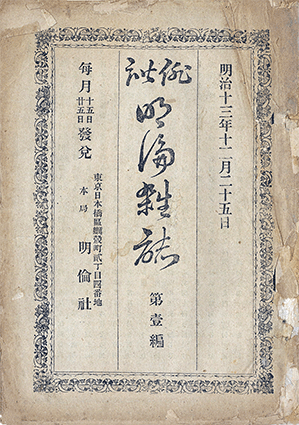 明治十三年十二月二十五日
俳諧
明倫雜誌
第壹編
每月
十五日
廿五日
發兌
東京日本橋區蠣殼町貳丁目四番地
本局 明倫社